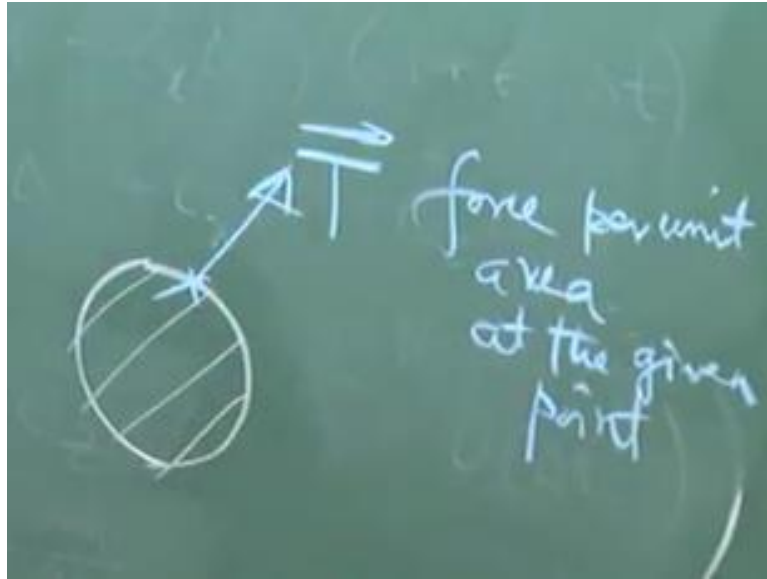 T force per unit
area
at the given
point